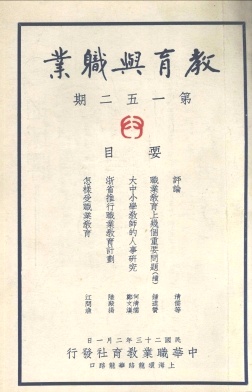 教育與職業
第一五二期
要目
評論 清儒等
職業教育上幾個重要問題(續) 鍾道贊
大中小學教師的人事研究 何清儒 鄭文漢
浙省推行職業教育計劃 陸殿揚
怎樣受職業教育 江問漁
民國二十三年二月一日
中華職業教育社發行
上海環龍路華龍路口